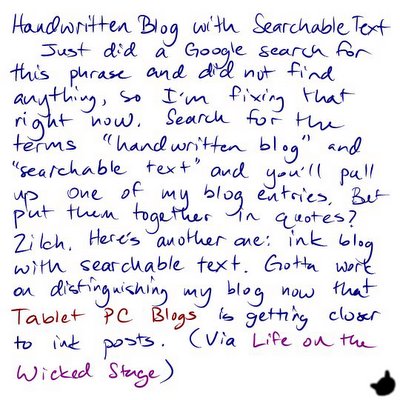 Handwritten Blog with Searchable Text
Just did a Google search for
this phrase and did not find
anything, so I'm fixing that
right now. Search for the
terms "handwritten blog" and
"searchable text" and you'll pull
up one of my blog entries. But
put them together in quotes?
Zilch. Here's another one: ink blog
with searchable text. Gotta work
on distinguishing my blog now that
Tablet PC Blogs is getting closer
to ink posts. (Via Life on the
Wicked Stage)